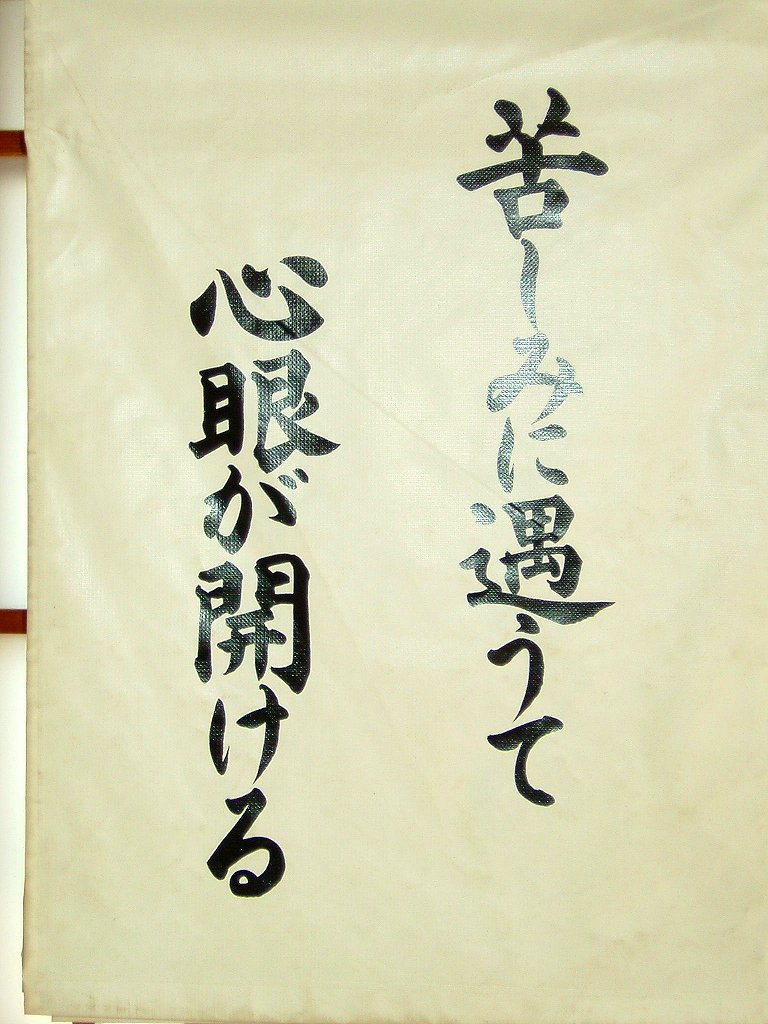 苦しみに遇うて
心眼が開ける